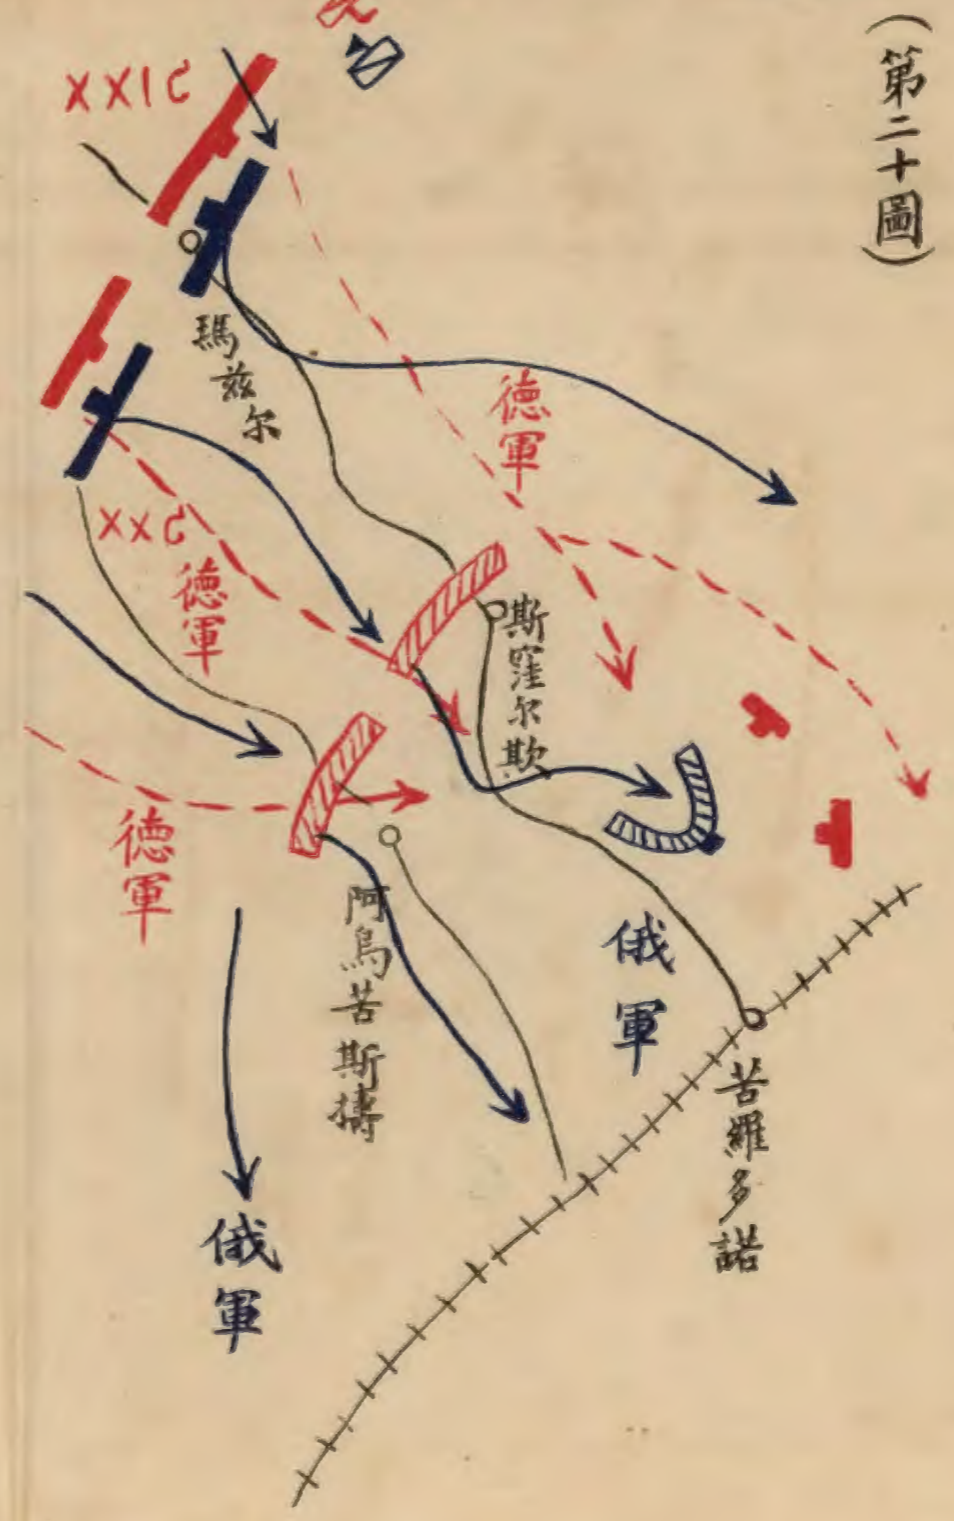 （第二十圖）
XXIC
瑪兹尔
德軍
XXC
德軍
斯窪尔欺
德軍
阿烏苦斯擣
俄軍
苦羅多諾
俄軍